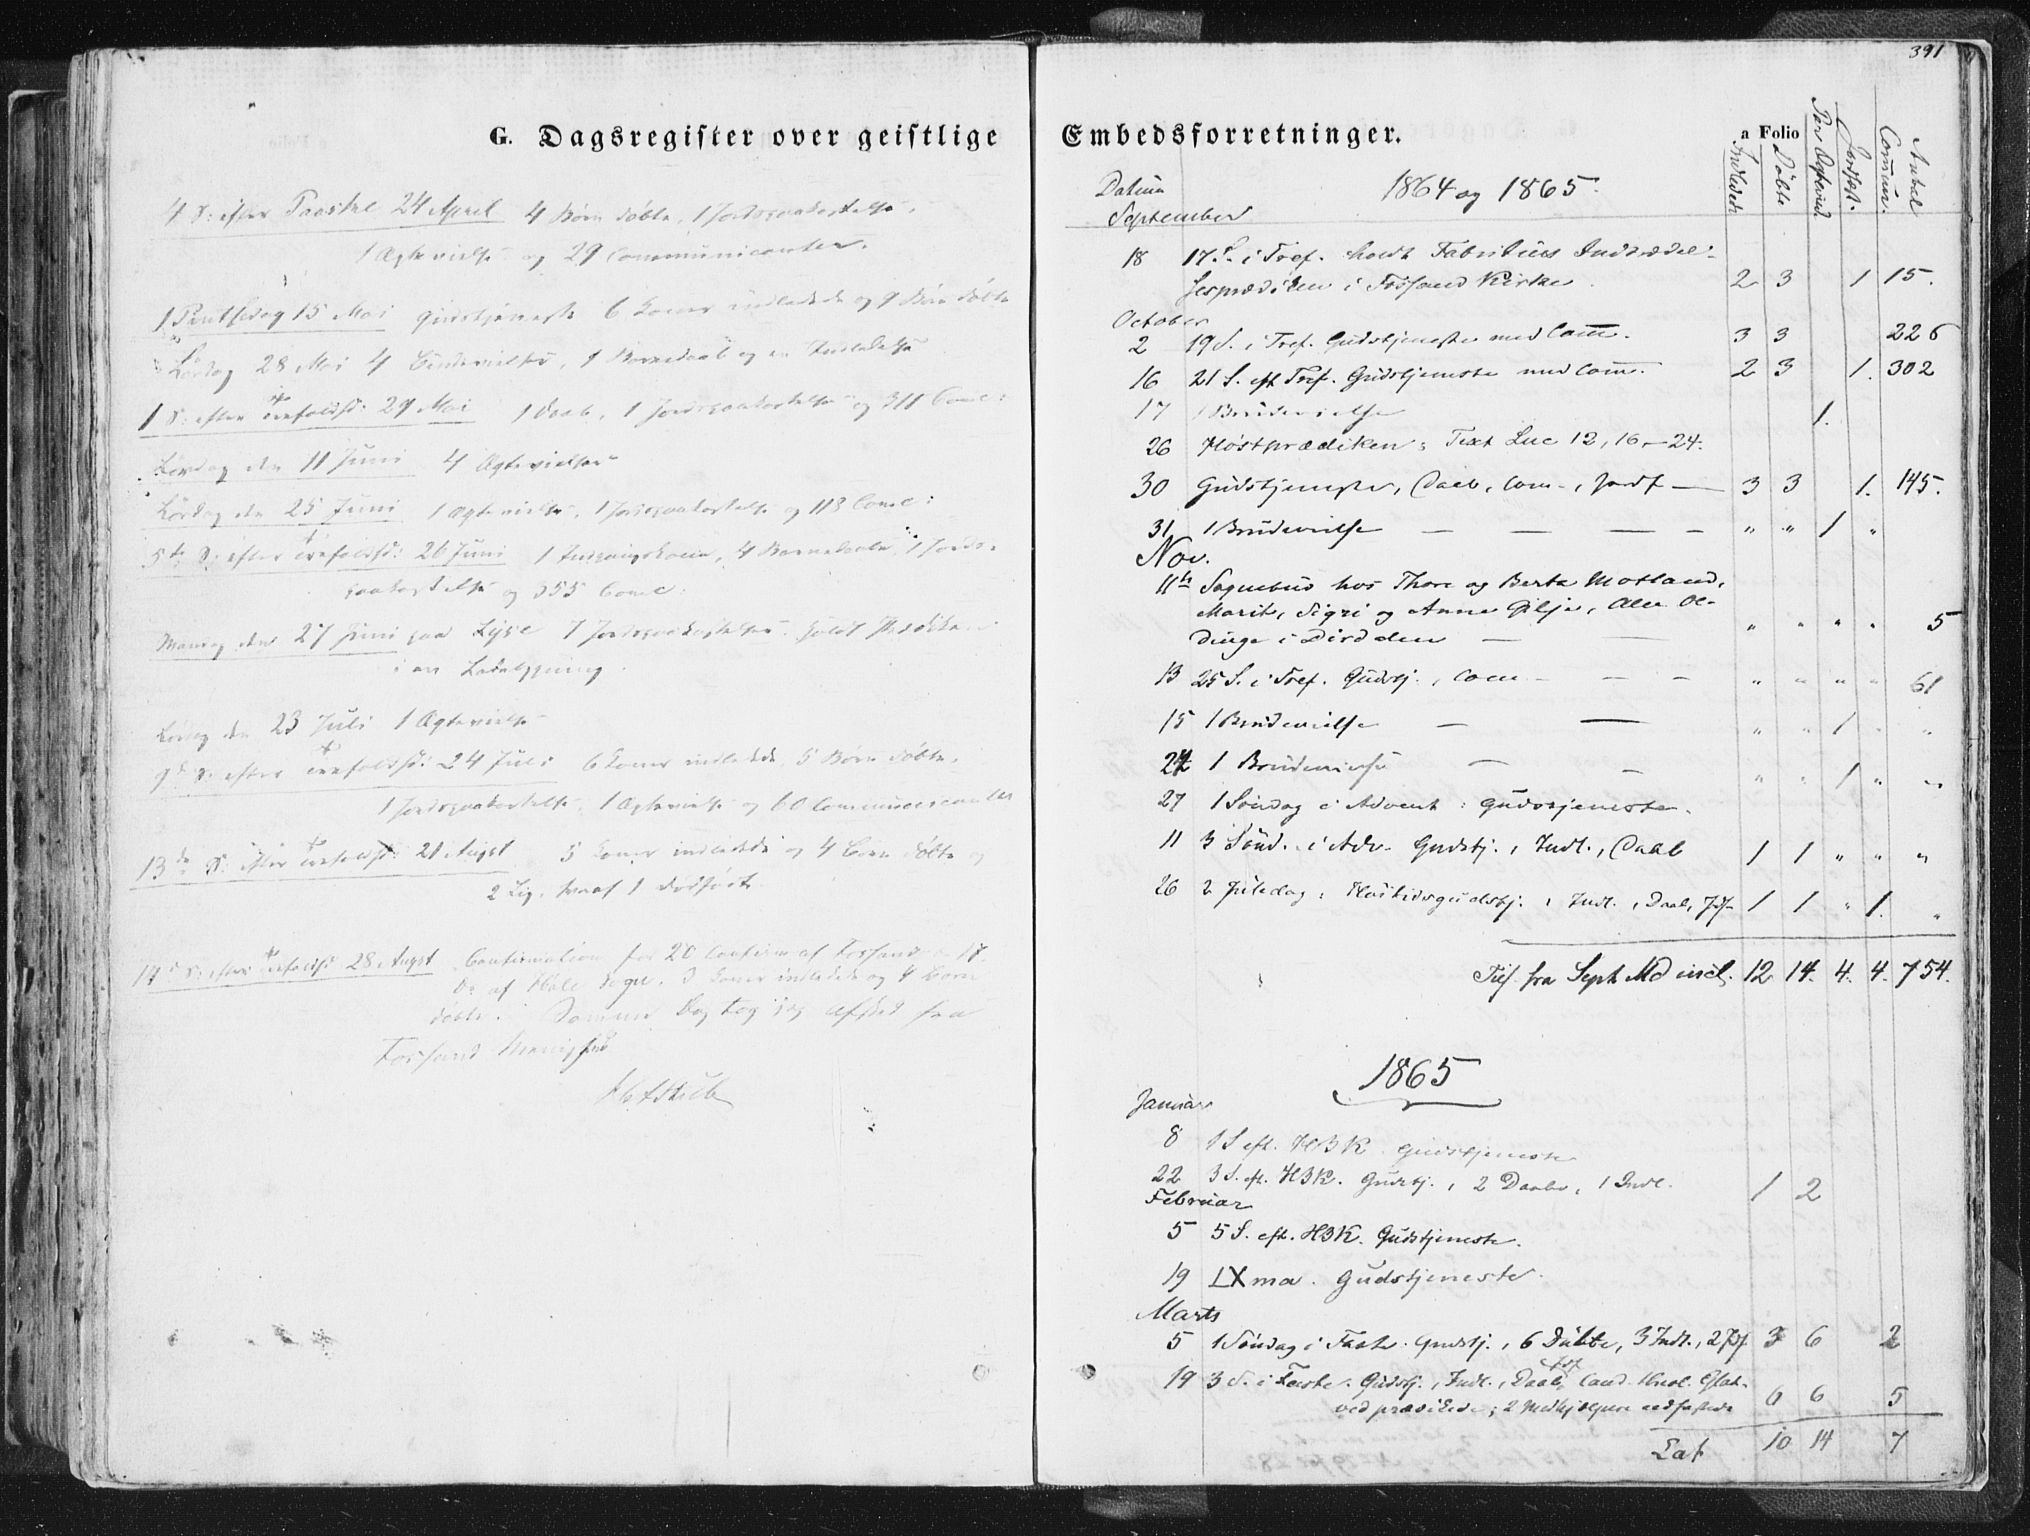 391
G. Dagsregister over geistlige
4 S: efter Paaske 24 April 4 Børn døbte, 1 Jordpaakastelse,
1 Ægtevielse og 29 Communicanter.
1 Pintsedag 15 Mai Gudstjeneste 6 Koner indledede og 9 Børn døbte
Lørdag 28 Mai 4 Brudevielser, 1 Barnedaab og en Indledelse
1 S: efter Trefoldsh: 29 Mai 1 Daab, 1 Jordpaakastelse og 311 Comc:
Lørdag den 11 Juni 4 Ægtevielser
Lørdag den 25 Juni 1 Ægtevielse, 1 Jordpaakastelse og 118 Comc:
5te S: efter Trefoldsh: 26 Juni 1 Indgangskone, 4 Barnedaabe, 1 Jords-
paakastelse og 355 Comc:
Mandag den 27 Juni paa Lyse 7 Jordpaakastelser. Holdt Prædiken
i en Ladebygning.
Lørdag den 23 Juli 1 Ægtevielse
9de S: efter Trefoldsh: 24 Juli 6 Koner indledede, 5 Børn døbte,
1 Jordpaakastelse, 1 Ægtevielse og 60 Communicanter
13de S: efter Trefoldsh: 21 August 5 Koner indledede og 4 Børn døbte og
2 Lig, hvoraf 1 dødfødt.
14de S: efter Trefoldsh 28 August Confirmation for 20 Confirm af Fossand 17
Do af Hole Sogn. 3 Koner indledede og 4 Børn
døbte. Samme Dag tog jeg Afsked fra
Fossand Menighed
Embedsforretninger.
a Folio
Indledede
Døbte
Par Ægteviede
Jordfæst.
Antal Commun.
Datum 1864 og 1865.
September
18 17 S. i Tref. holdt Fabritius Indtrædel-
sesprædiken i Fossand Kirke. 2 3 1 15.
October
2 19 S. i Tref. Gudstjeneste med Com. 3 3 226
16 21 S. eft Tref. Gudstjeneste med Com. 2 3 1. 302
17 1 Brudevielse 1.
26 Høstprædiken: Text Luc 12, 16-24.
30 Gudstjeneste, Daab, Com-, Jordf — 3 3 1. 145.
31 1 Brudevielse — — — — " " 1 "
Nov.
11te Sognebud hos Thore og Berta Motland,
Marit, Sigri og Anna Gilje, Ale Ol-
dinge i Dirddalen — — " " " " 5
13 25 S. i Tref. Gudstj., Com — — — " " " " 61
15 1 Brudevielse — — " " 1 " "
24 1 Brudevielse — — " " 1 " "
27 1 Søndag i Advent: Gudstjeneste.
11 3 Sønd. i Adv. Gudstj., Indl., Daab 1 1 " " "
26 2 Juledag: Høitidsgudstj., Indl., Daab, Jdf- 1 1 " 1. "
Tils. fra Sept Md incl. 12 14. 4. 4. 754.
1865
Januar
8 1 S eft. H3K Gudstjeneste
22 3 S. eft. H3K. Gudstj., 2 Daabe, 1 Indl. 1 2
Februar
5 5 S. eft. H3K. Gudstjeneste.
19 LXma. Gudstjeneste.
Marts
5 1 Søndag i Faste. Gudstj., 6 Døbte, 3 Indl., 2 Jdf 3 6 2
19 3 S. i Faste. Gudstj., Indl., Daab, Jdf Cand.
prædikede; 2 Medhjælpere 6 6 5
Lat 10 14 7